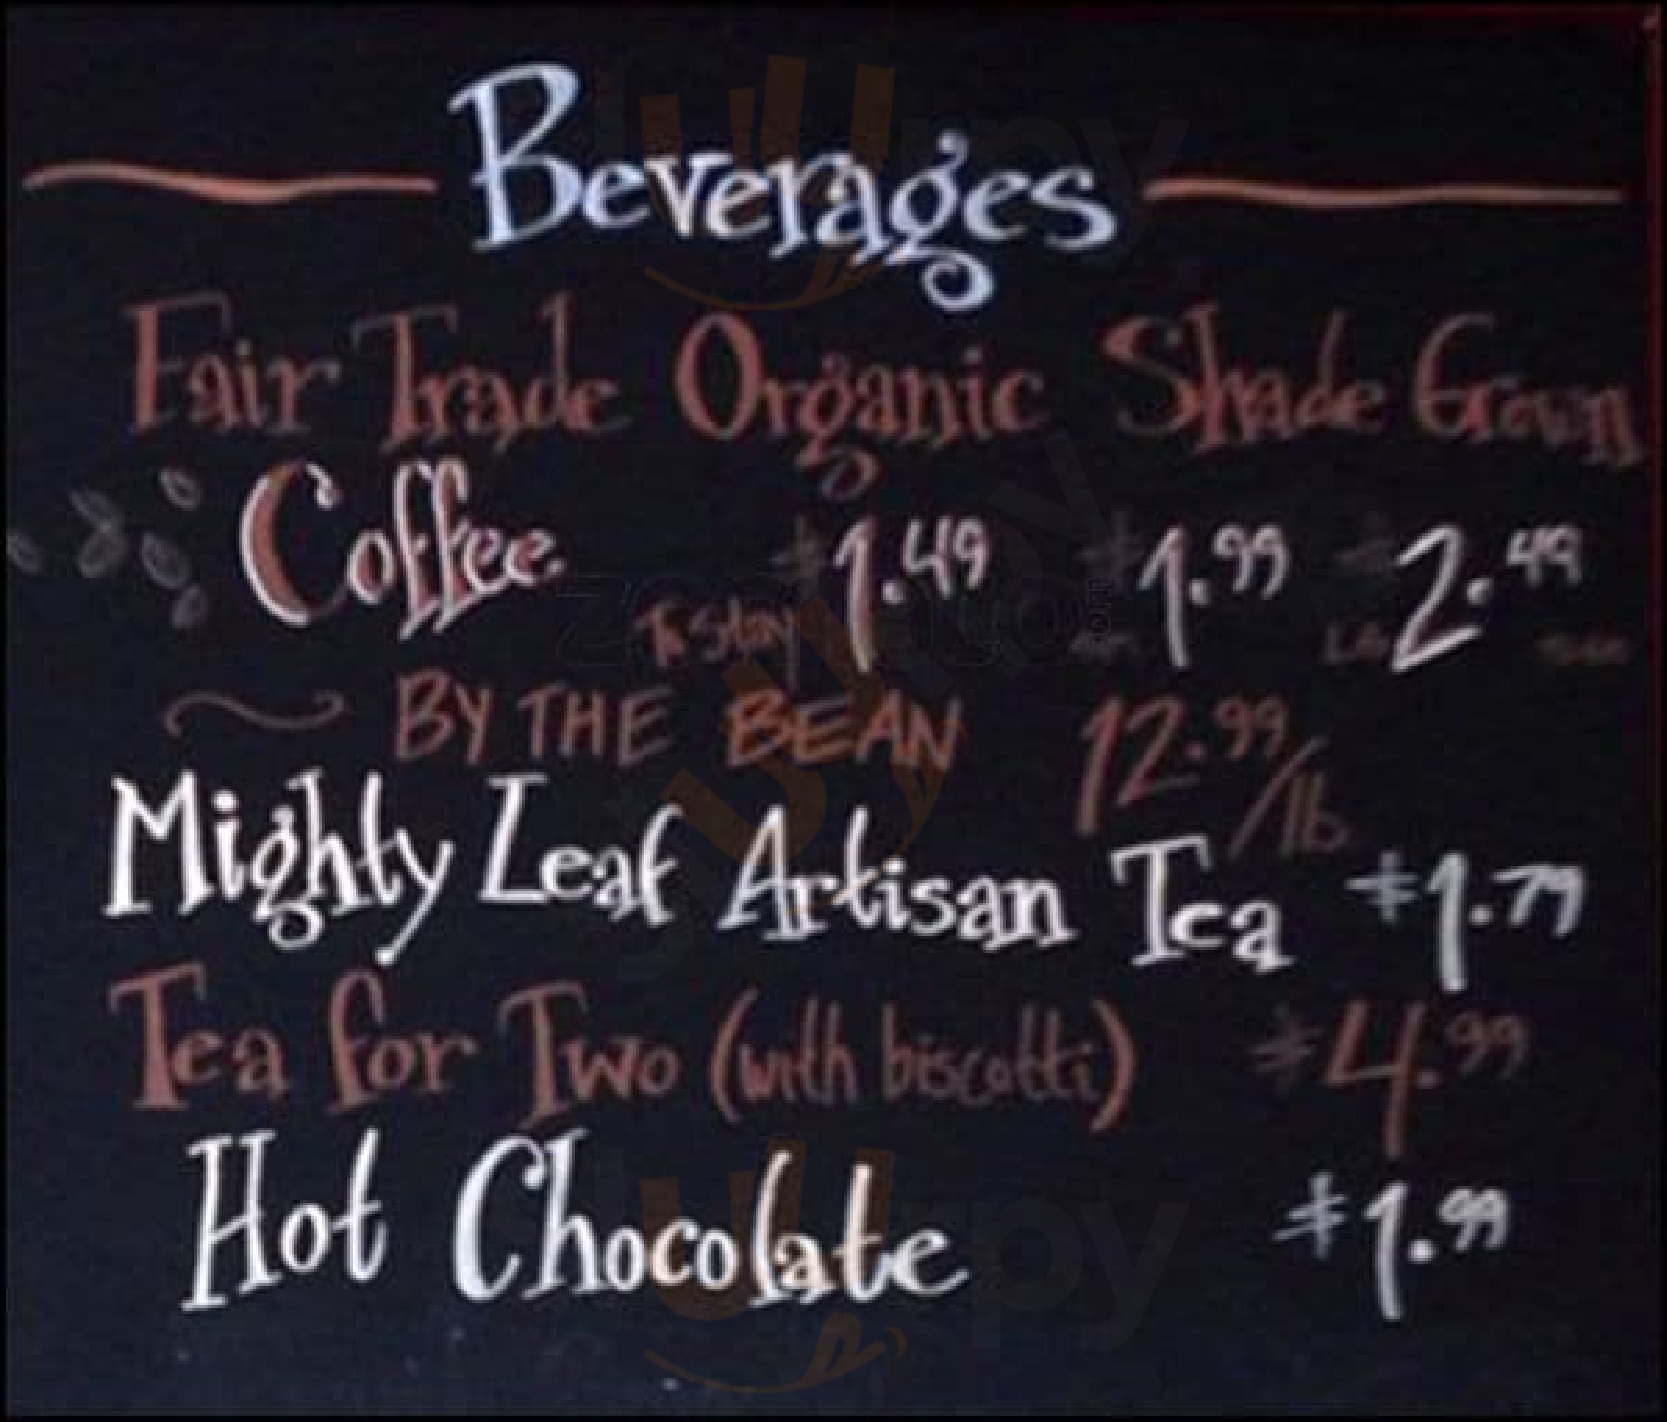 Beverages
Fair Trade Organic Shade Grown
Coffee $1.49 $1.99 $2.49
BY THE BEAN 12.99/lb
Mighty Leaf Artisan Tea $1.79
Tea for Two (with biscotti) $4.99
Hot Chocolate $1.99